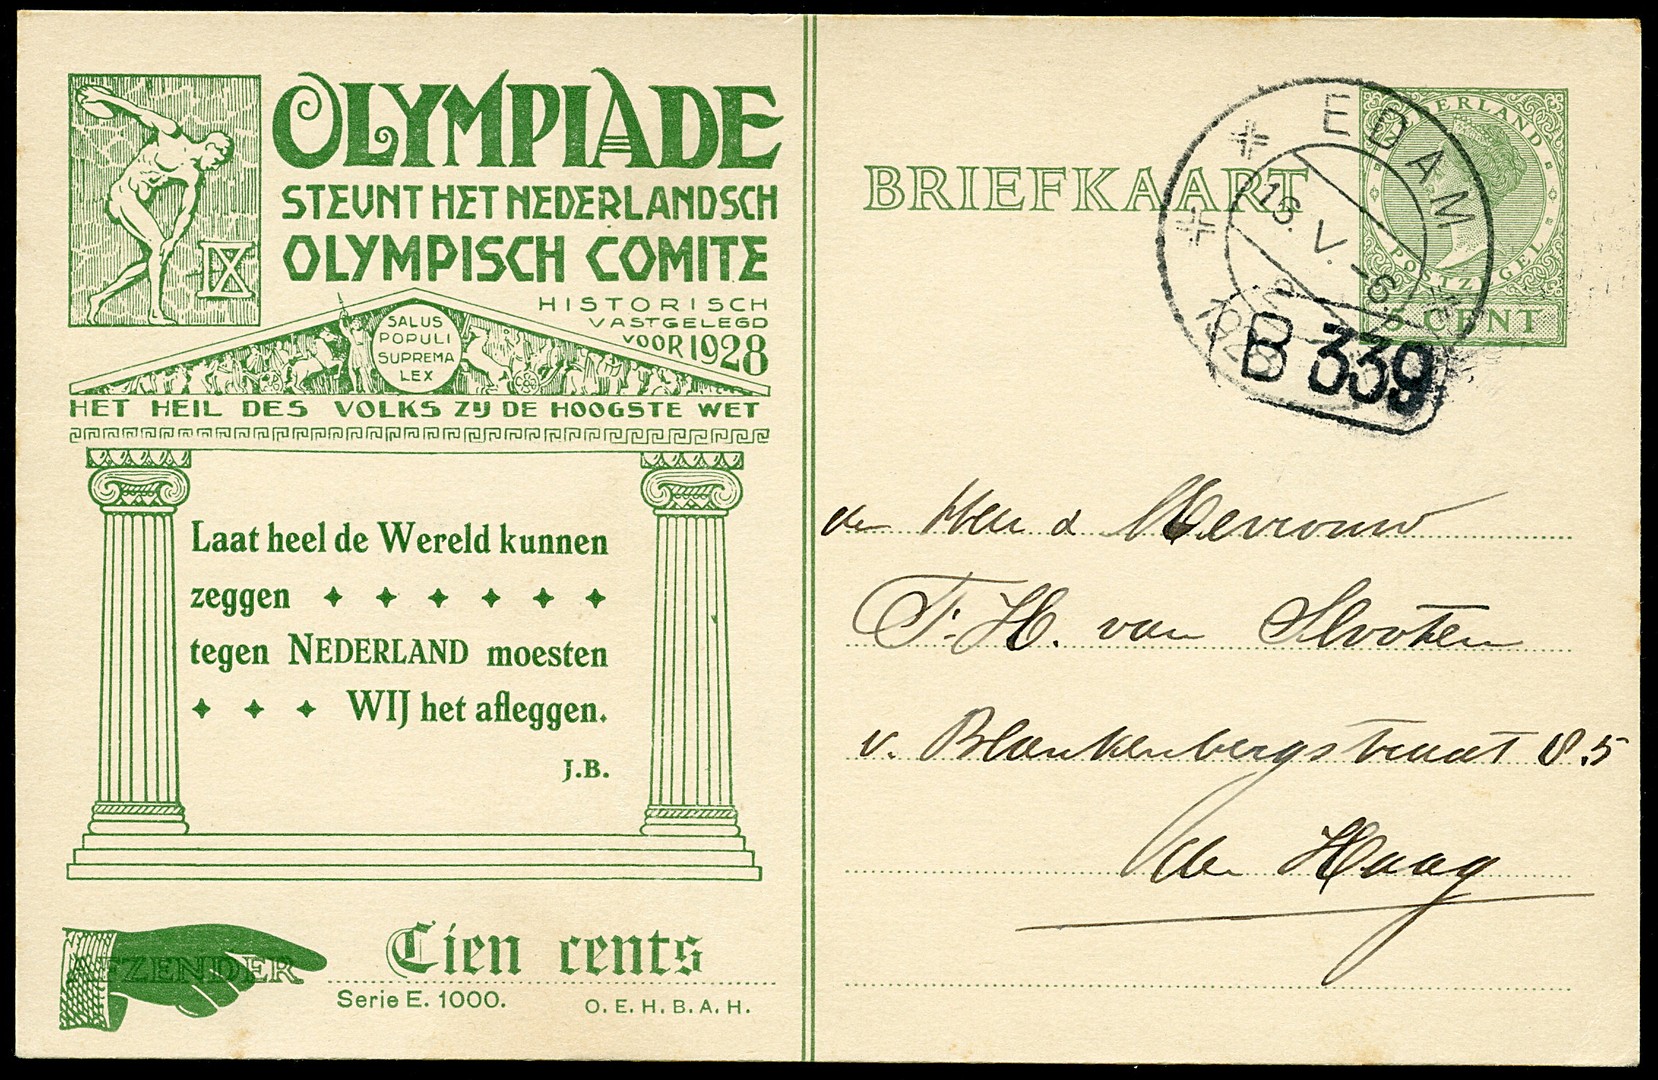 OLYMPIADE
STEUNT HET NEDERLANDSCH
OLYMPISCH COMITE
IX
HISTORISCH
VASTGELEGD
VOOR 1928
SALUS
POPULI
SUPREMA
LEX
HET HEIL DES VOLKS ZIJ DE HOOGSTE WET
Laat heel de Wereld kunnen
zeggen
tegen NEDERLAND moesten
WIJ het afleggen.
J.B.
AFZENDER
Tien cents
Serie E. 1000.
O. E. H. B. A. H.
BRIEFKAART
NEDERLAND
POSTZEGEL
5 CENT
EDAM
16. V. -6
1928
B 339
den Heer & Mevrouw
F. H. van Slooten
v. Blankenbergstraat 85
den Haag